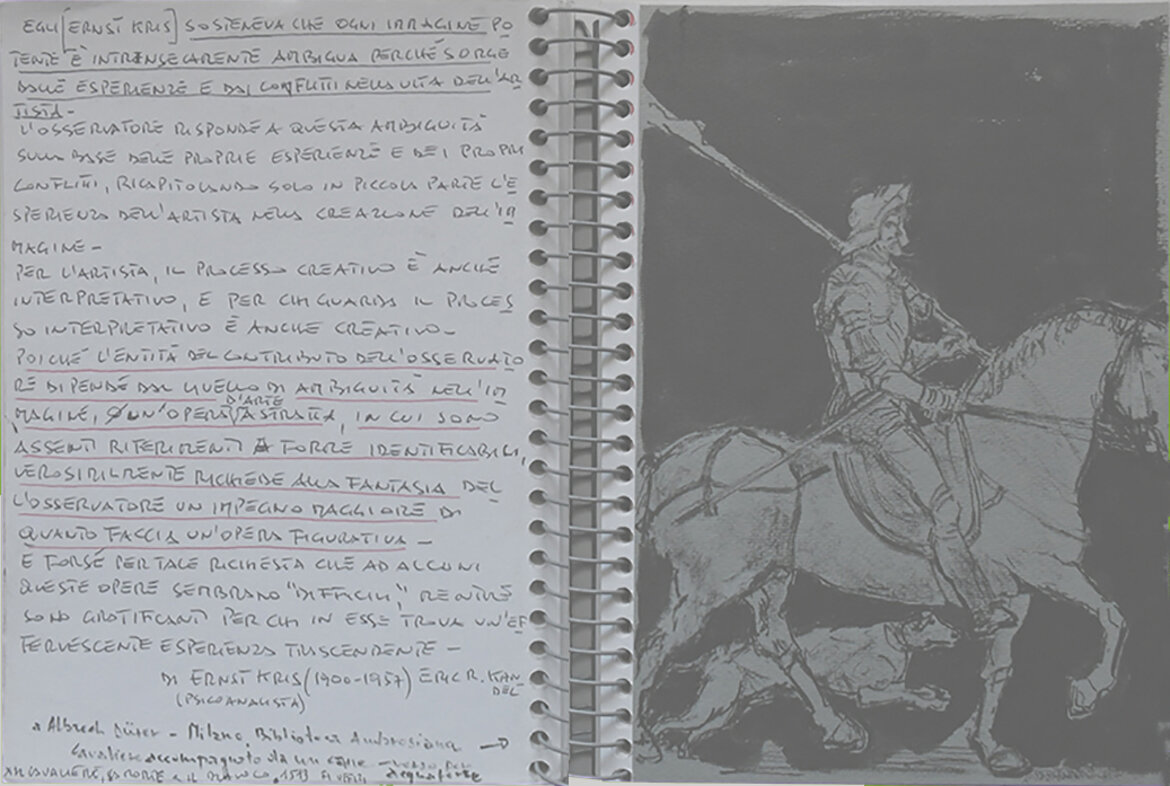 EGLI [ERNST KRIS] SOSTENEVA CHE OGNI IMMAGINE PO
TENTE È INTRINSECAMENTE AMBIGUA PERCHÉ SORGE
DALLE ESPERIENZE E DAI CONFLITTI NELLA VITA DELL'AR
TISTA-
L'OSSERVATORE RISPONDE A QUESTA AMBIGUITÀ
SULLA BASE DELLE PROPRIE ESPERIENZE E DEI PROPRI
CONFLITTI, RICAPITOLANDO SOLO IN PICCOLA PARTE L'E
SPERIENZA DELL'ARTISTA NELLA CREAZIONE DELL'IM
MAGINE-
PER L'ARTISTA, IL PROCESSO CREATIVO È ANCHE
INTERPRETATIVO, E PER CHI GUARDA IL PROCES
SO INTERPRETATIVO È ANCHE CREATIVO-
POICHÉ L'ENTITÀ DEL CONTRIBUTO DELL'OSSERVATO
RE DIPENDE DAL LIVELLO DI AMBIGUITÀ NELL'IM
MAGINE, UN'OPERA D'ARTE ASTRATTA, IN CUI SONO
ASSENTI RIFERIMENTI A FORME IDENTIFICABILI,
VEROSIMILMENTE RICHIEDE ALLA FANTASIA DEL
L'OSSERVATORE UN IMPEGNO MAGGIORE DI
QUANTO FACCIA UN'OPERA FIGURATIVA-
E FORSE PER TALE RICHIESTA CHE AD ALCUNI
QUESTE OPERE SEMBRANO "DIFFICILI", MENTRE
SONO GRATIFICANTI PER CHI IN ESSE TROVA UN'EF
FERVESCENTE ESPERIENZA TRASCENDENTE-
DI ERNST KRIS (1900-1957) ERIC R. KAN
DEL
(PSICOANALISTA)
Albrech Dürer - Milano Biblioteca Ambrosiana
Cavaliere accompagnato da un cane - verso per
CAVALIERE, LA MORTE E IL DIAVOLO, 1513 acquaforte